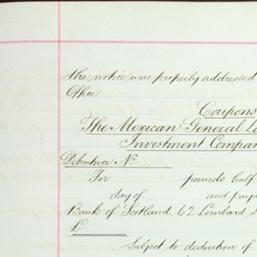 the notice was properly addressed
Office
Coupons
The Mexican General L
Investment Compan
Debenture No
For pounds half
day of and paya
Bank of Scotland, 62 Lombard S
£
Subject to deduction of